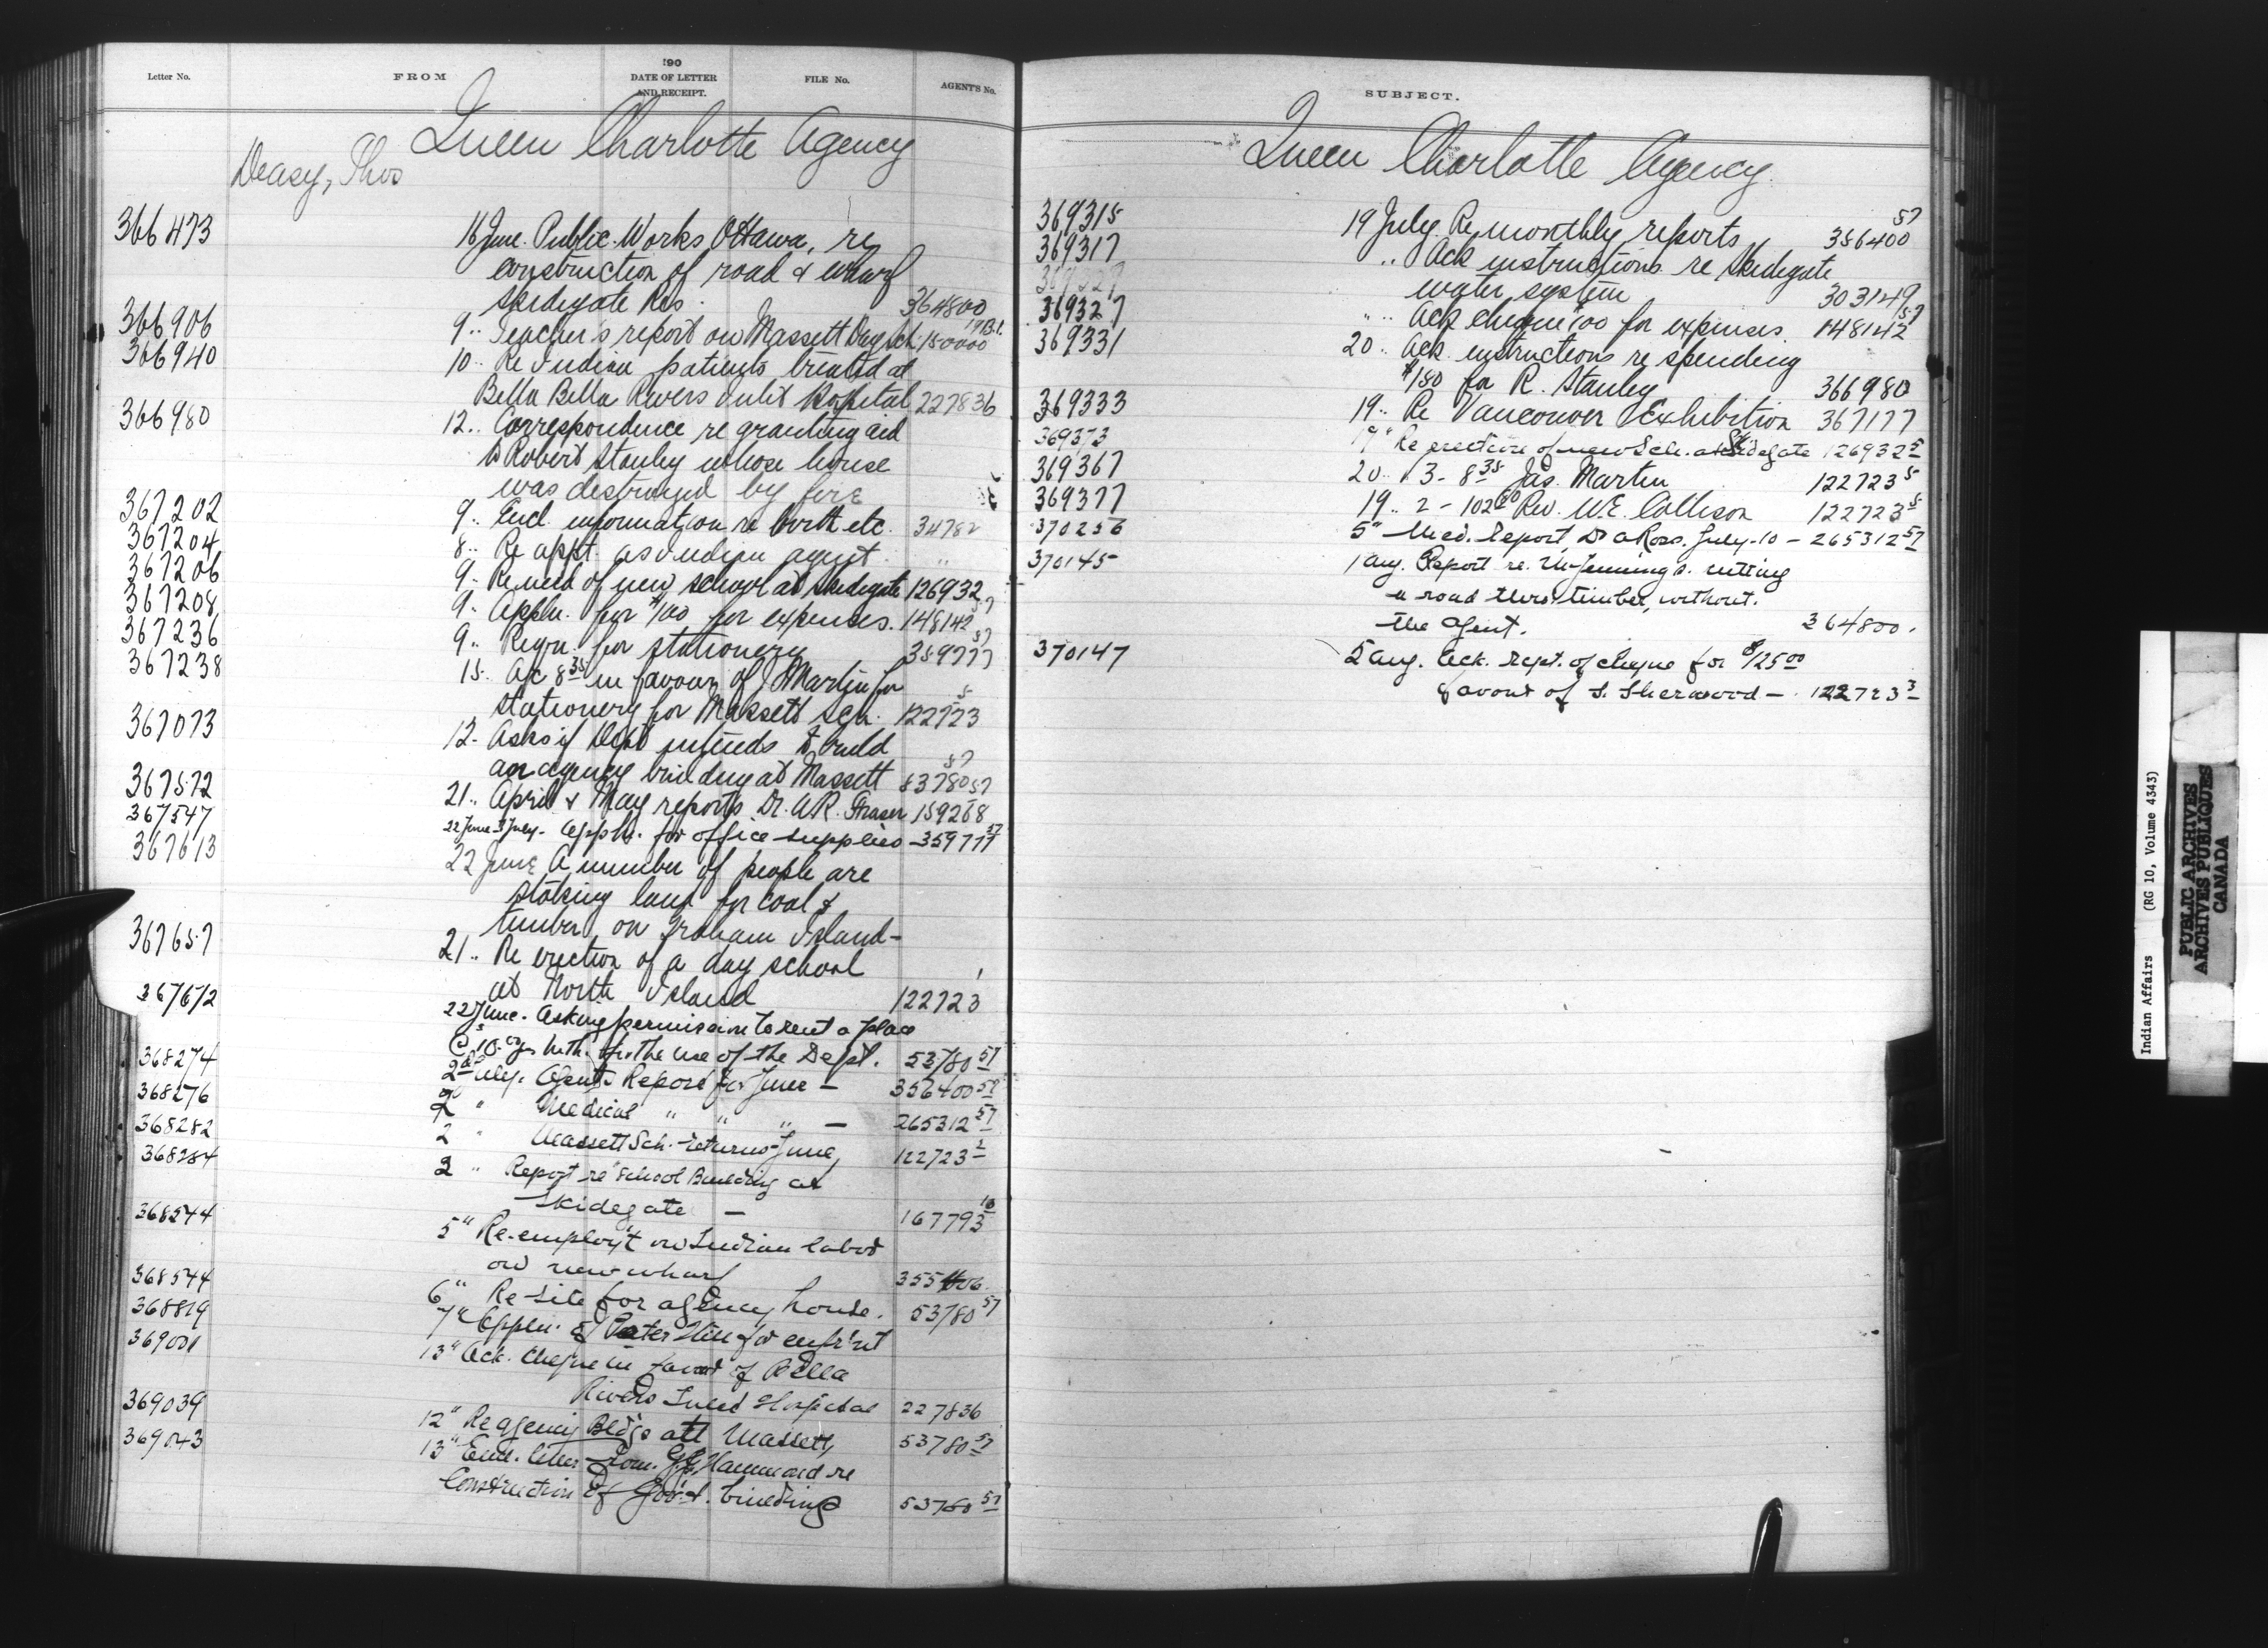 Letter No. FROM 190 DATE OF LETTER AND RECEIPT. FILE No. AGENT'S No.
Queen Charlotte Agency
Deasy, Thos
366473 16 June. Public Works Ottawa, re
construction of road & wharf
Skidegate Res. 364800
366906 9 " Teacher's report on Massett Day Sch. 150000
366940 10 " Re Indian patients treated at
Bella Bella Rivers Inlet Hospital 227836
366980 12 " Correspondence re granting aid
to Robert Stanley whose house
was destroyed by fire
367202 9 " Encl. information re birth etc. 34782
367204 8 " Re appt. as Indian agent "
367206 9 " Re need of new school at Skidegate 126932
367208 9 " Appln. for $100 for expenses. 148142 57
367236 9 " Reqn. for stationery 359777 57
367238 15 " A/c 8.35 in favour of J Martin for
stationery for Massett Sch. 122723 5
367073 12 " Asks if Dept intends to build
an agency building at Massett 53780 57
367572 21 " April & May reports Dr. A.R. Fraser 159268 57
367547 22 June - 3 July - Appln. for office supplies - 359777 57
367613 22 June A number of people are
staking land for coal &
timber on Graham Island -
367657 21 " Re erection of a day school
at North Island 122723 1
367672 22 June. Asking permission to rent a place
@ $10. for the use of the Dept. 53780 57
368274 2 July. Agents Report for June - 356400 57
368276 2 " Medical " " " - 265312 57
368282 2 " Massett Sch. returns June, 122723 1
368284 2 " Report re School Building at
Skidegate - 167793 10
368544 5 " Re-employ't on Indian labor
on new wharf 355406
368544 6 " Re-site for agency house. 53780 57
368819 7 " Appln. of Peter Hill for enfr'nt
369001 13 " Ack. cheque in favor of Bella
Rivers Inlet Hospital 227836
369039 12 " Re agency Bldgs at Massett, 53780 57
369043 13 " Encl. letter from Hammond re
Construction of Gov't. building 53780 57
SUBJECT.
Queen Charlotte Agency.
369315 19 July. Re monthly reports 356400 57
369317 " Ack instructions re Skidegate
water system 303149
369327 " " Ack cheque 100 for expenses. 148142 57
369331 20 " Ack. instructions re spending
$150 for R. Stanley 366980
369333 19 " Re Vancouver Exhibition 367177
369373 19 " Re erection of new Sch. at Skidegate 126932 5
369367 20 " 3 - 8.35 Jas. Martin 122723 5
369377 19 " 2 - 102.60 Rev. W.E. Collison 122723 5
370256 5 " Med. Report, Dr A Ross. July-10 - 265312 57
370145 1 Aug. Report re. Mr Jennings. cutting
a road thro. timber, without.
the Agent. 364800.
370147 5 Aug. Ack. rept. of cheque for $125.00
favour of S. Sherwood - 122723 3
Indian Affairs (RG 10, Volume 4343)
PUBLIC ARCHIVES
ARCHIVES PUBLIQUES
CANADA